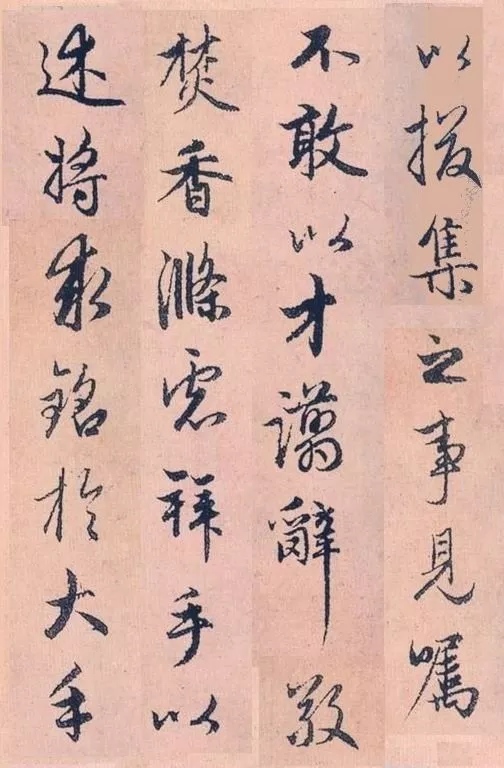 以掇集之事見囑
不敢以才譾辭敬
焚香滌慮拜手以
述將求銘於大手